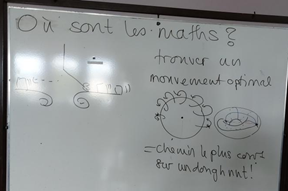 Où sont les maths?
trouver un
mouvement optimal
= chemin le plus court
sur un doughnut!